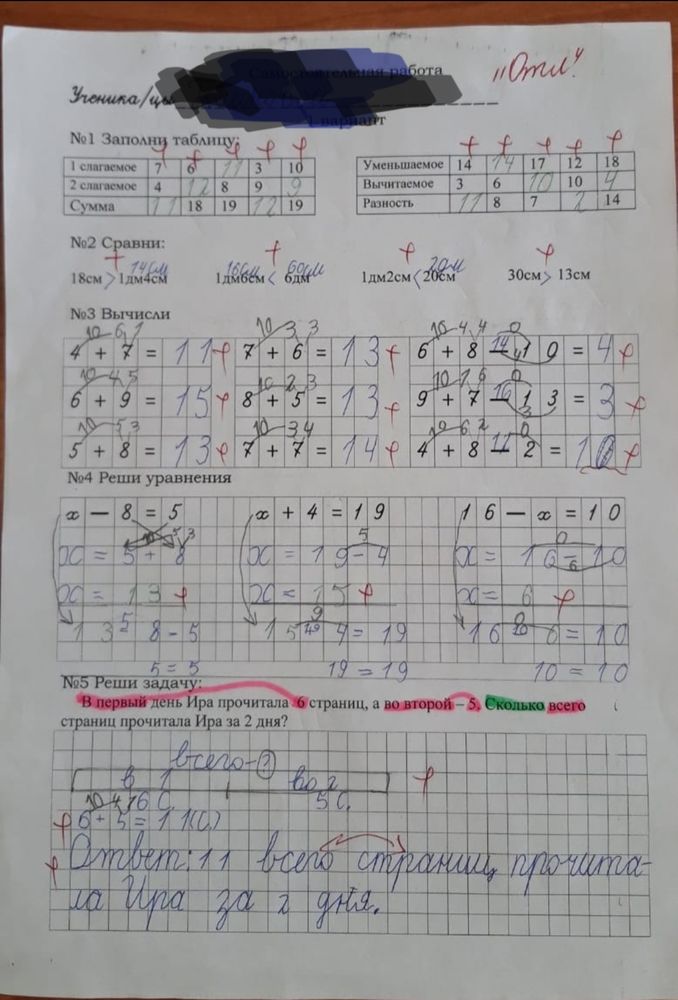 Самостоятельная работа
"Отл."
Ученика/цы
1 вариант
№1 Заполни таблицу:
1 слагаемое 7 6 11 3 10
2 слагаемое 4 12 8 9 9
Сумма 11 18 19 12 19
Уменьшаемое 14 14 17 12 18
Вычитаемое 3 6 10 10 4
Разность 11 8 7 2 14
№2 Сравни:
14см 16см 60см 20см
18см > 1дм4см 1дм6см < 6дм 1дм2см < 20см 30см > 13см
№3 Вычисли
10 6, 1 10 3, 3 10 4, 4 0
4 + 7 = 11 7 + 6 = 13 6 + 8 - 10 = 4
10 4, 5 10 2, 3 10 1, 6 0
6 + 9 = 15 8 + 5 = 13 9 + 7 - 13 = 3
10 5, 3 10 3, 4 10 6, 2 0
5 + 8 = 13 7 + 7 = 14 4 + 8 - 2 = 10
№4 Реши уравнения
x - 8 = 5 x + 4 = 19 16 - x = 10
x = 5 + 8 x = 19 - 4 x = 16 - 10
x = 13 x = 15 x = 6
13 - 8 = 5 15 + 4 = 19 16 - 6 = 10
5 = 5 19 = 19 10 = 10
№5 Реши задачу:
В первый день Ира прочитала 6 страниц, а во второй – 5. Сколько всего
страниц прочитала Ира за 2 дня?
всего - ?
в 1 во 2
6 с. 5 с.
6 + 5 = 11 (с.)
Ответ: 11 всего страниц прочита-
ла Ира за 2 дня.